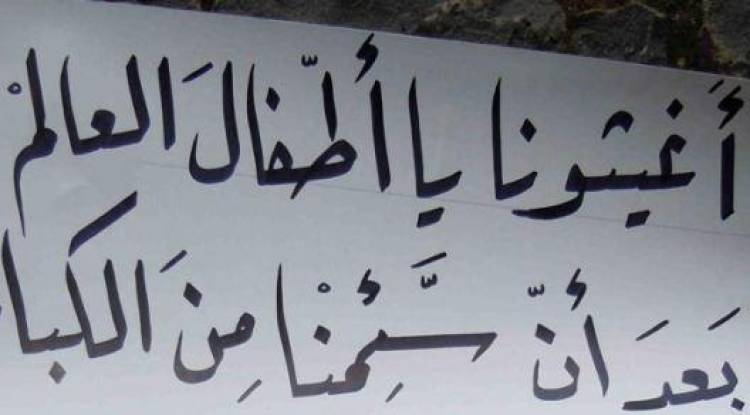 أَغيثونا يا أطفّالَ العالمْ
بَعدَ أنّ سَّئِمْنا مِنَ الكبا